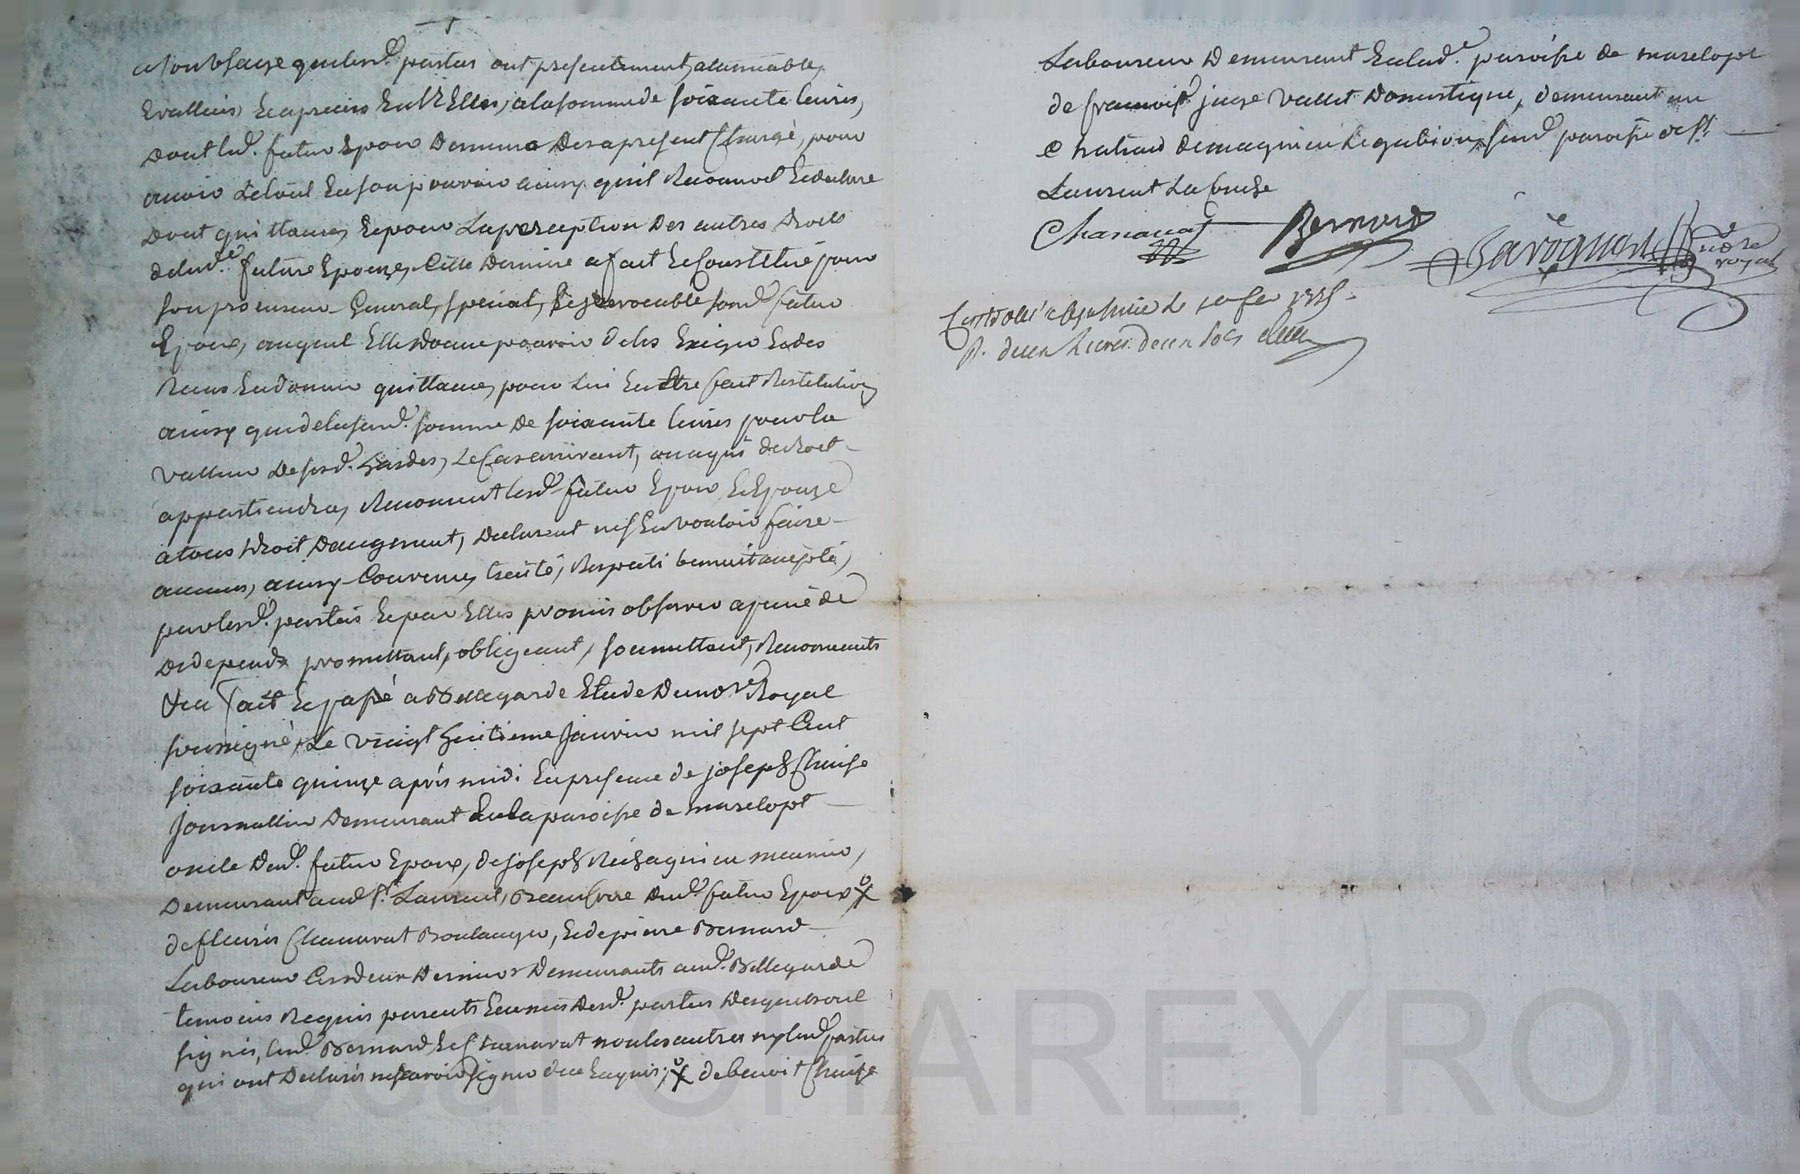 a son usage que lesd. parties ont presentement a lamiable,
Evallués Et apreciés Entr Elles, a la somme de soixante livres,
Dont led. futur Epoux Demeure Des a present Chargé, pour
avoir le tout En son pouvoir ainsy qu'il Reconnoit Et declare
Dont quittance, Et pour La perception Des autres Droits
de lad.e future Epouze, Cette Derniere a fait Et Constitué pour
son procureur General, special, Et irrevocable sond. futur
Epoux, auquel Elle Donne pouvoir de les Exiger Et des
Recus En donner quittances, pour Lui En Etre fait Restitution
ainsy que de la susd. somme de soixante livres pour la
valleur de sesd. hardes, Le Cas arrivant, ou a qui de droit
appartiendra, Renonçant lesd. futur Epoux Et Epouze
a tous Droit Daugment, Declarant n'En vouloir faire
aucuns, ainsy Convenu, traité, Respecti vement accepté,
par lesd. parties Et par Elles promis observer a peine de
De depends promettant, obligeant, soumettant, Renonceants
&ca fait Et passé a Bellegarde Etude Du no.re Royal
soussigné, Le vingt huitieme Janvier mil sept Cent
soixante quinze après midi En presence de joseph Chuize
Journallier Demeurant En La paroisse de marclopt
oncle Dud. futur Epoux, de joseph Rechagnieu meunier,
Demeurant aud. St. Laurent, Beaufrere Dud. futur Epoux X
de fleuris Chanavat Boulanger, Et de pierre Bernard
Laboureur Ces deux Derniers Demeurants aud. Bellegarde
temoins Requis parents Et amis Desd. parties Desquels ont
signés, led. Bernard Et Chanavat non les autres ny lesd. parties
qui ont Declarés ne savoir signer de ce Enquis; X de benoit Chuize
Laboureur Demeurant En lad.e paroisse de marclopt
de francois juge vallet Domestique, demeurant au
Chateau de magnieu le gabion susd. paroisse de St.
Laurent La Conche
Chanavat Bernard Paroquon no.re royal
Controllé a le 10 fev 1775
R. deux livres deux sols
CHAREYRON